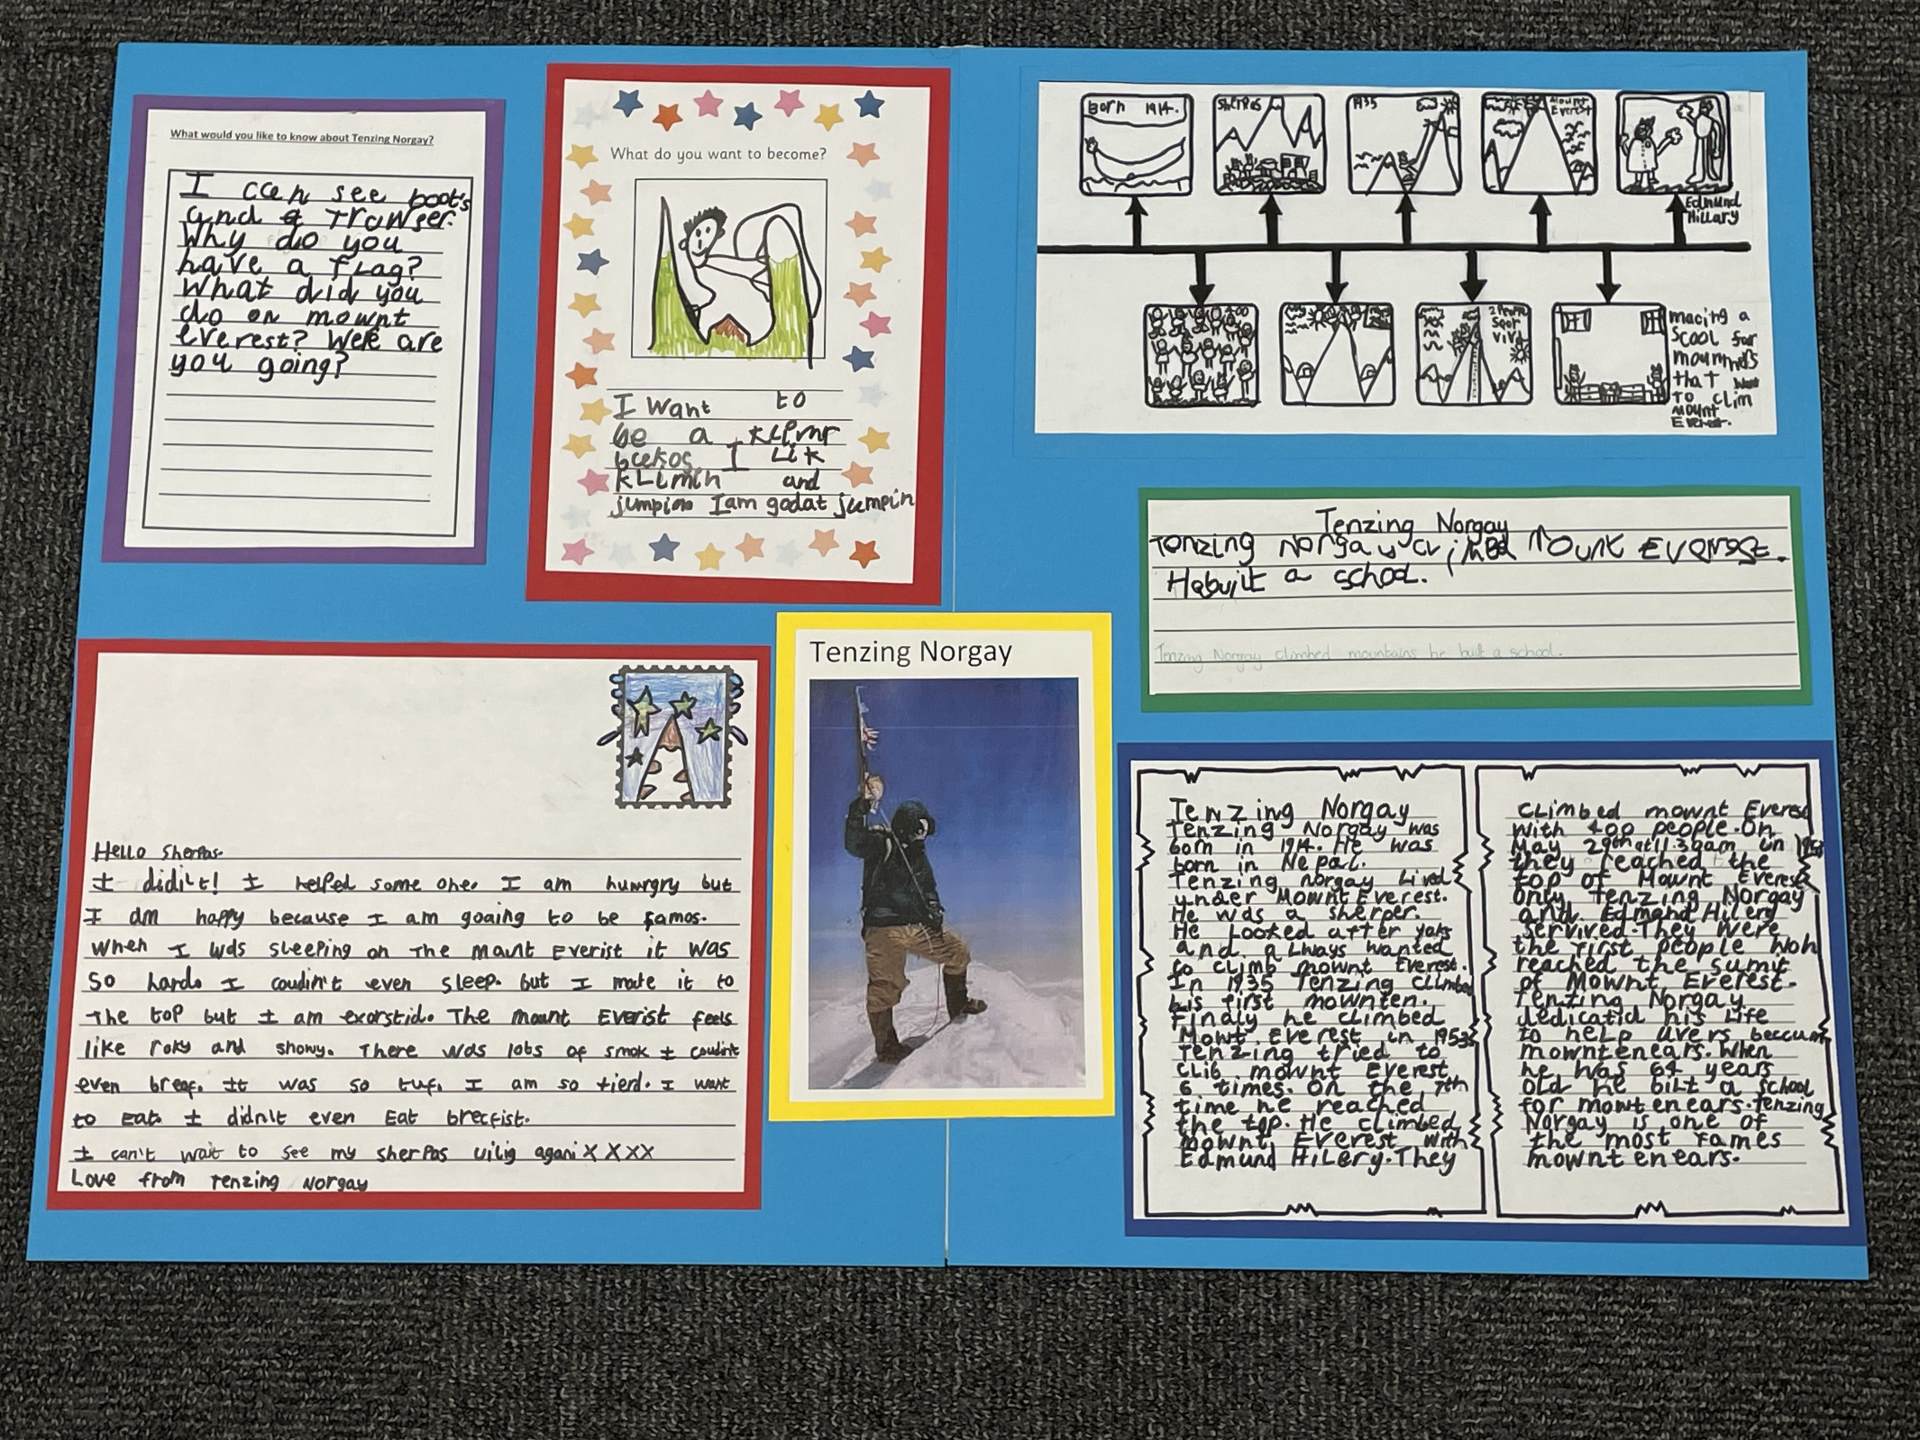 What would you like to know about Tenzing Norgay?
I can see boots
and a Trowser.
Why do you
have a flag?
What did you
do on mownt
everest? Were are
you going?
What do you want to become?
I Want to
be a kLPmr
beckos I Lik
kLimin and
jumping I am godat jumpin
Born 1914.
Sherpas
1935
Mount
Everest
Edmund
Hillary
2 People
Soor
vivd
macing a
Scool for
mountnds
that
To clim
Mount
Everest.
Tenzing Norgay
Tenzing Norgay climbed Mount Everest.
He built a school.
Tenzing Norgay climbed mountains he built a school.
Hello Sherpas.
I didil't! I helped some one. I am hungry but
I am happy because I am goaing to be famos.
When I was sleeping on The Mount Everist it was
So hard. I couldin't even sleep. but I mate it to
The top but I am exorstid. The mount Everist feels
like roky and snowy. There was lots of smok I couldint
even breaf. It was so tuf. I am so tierd. I want
to Eat. I didn't even Eat brecfist.
I can't wait to see my Sherpas vilig agani X X X X
Love from Tenzing Norgay
Tenzing Norgay
Tenzing Norgay
Tenzing Norgay was
born in 1914. He was
born in Nepal.
Tenzing norgay Lived
under Mownt Everest.
He was a sherper.
He Looked after yaks
and always wanted
to climb mownt Everest.
In 1935 Tenzing climbed
his first mownten.
Finaly he climbed
Mownt Everest in 1953.
Tenzing tried to
CLib mownt Everest
6 times. On the 7th
time he reached
the top. He climbed
mownt Everest with
Edmund Hilery. They
CLimbed mownt Everest
with 400 people. On
May 29th at 11:30am in 1953
they reached the
top of Mownt Everest
only Tenzing Norgay
and Edmand Hilery
servived. They were
the first people hoh
reached the sumit
of Mownt Everest.
Tenzing Norgay
dedicatid his Life
to help uvers beccum
mowntenears. When
he was 64 years
old he bilt a school
for mowtenears. Tenzing
Norgay is one of
the most fames
mowntenears.